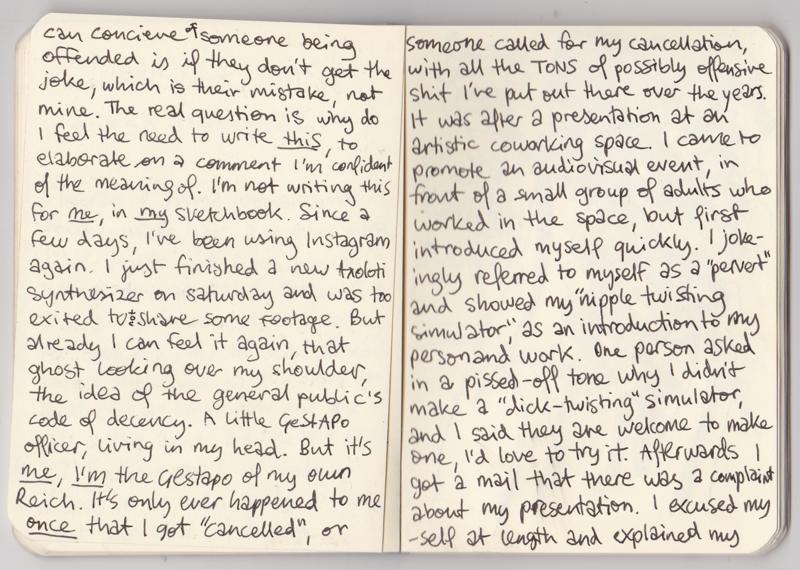 can concieve of someone being
offended is if they don't get the
joke, which is their mistake, not
mine. The real question is why do
I feel the need to write this, to
elaborate on a comment I'm confident
of the meaning of. I'm not writing this
for me, in my sketchbook. Since a
few days, I've been using Instagram
again. I just finished a new txoloti
synthesizer on saturday and was too
exited to share some footage. But
already I can feel it again, that
ghost looking over my shoulder,
the idea of the general public's
code of decency. A little GESTAPO
officer, living in my head. But it's
me, I'm the Gestapo of my own
Reich. It's only ever happened to me
once that I got "cancelled", or
someone called for my cancellation,
with all the TONS of possibly offensive
shit I've put out there over the years.
It was after a presentation at an
artistic coworking space. I came to
promote an audiovisual event, in
front of a small group of adults who
worked in the space, but first
introduced myself quickly. I joke-
ingly referred to myself as a "pervert"
and showed my "nipple twisting
simulator", as an introduction to my
person and work. One person asked
in a pissed-off tone why I didn't
make a "dick-twisting" simulator,
and I said they are welcome to make
one, I'd love to try it. Afterwards I
got a mail that there was a complaint
about my presentation. I excused my
-self at length and explained my